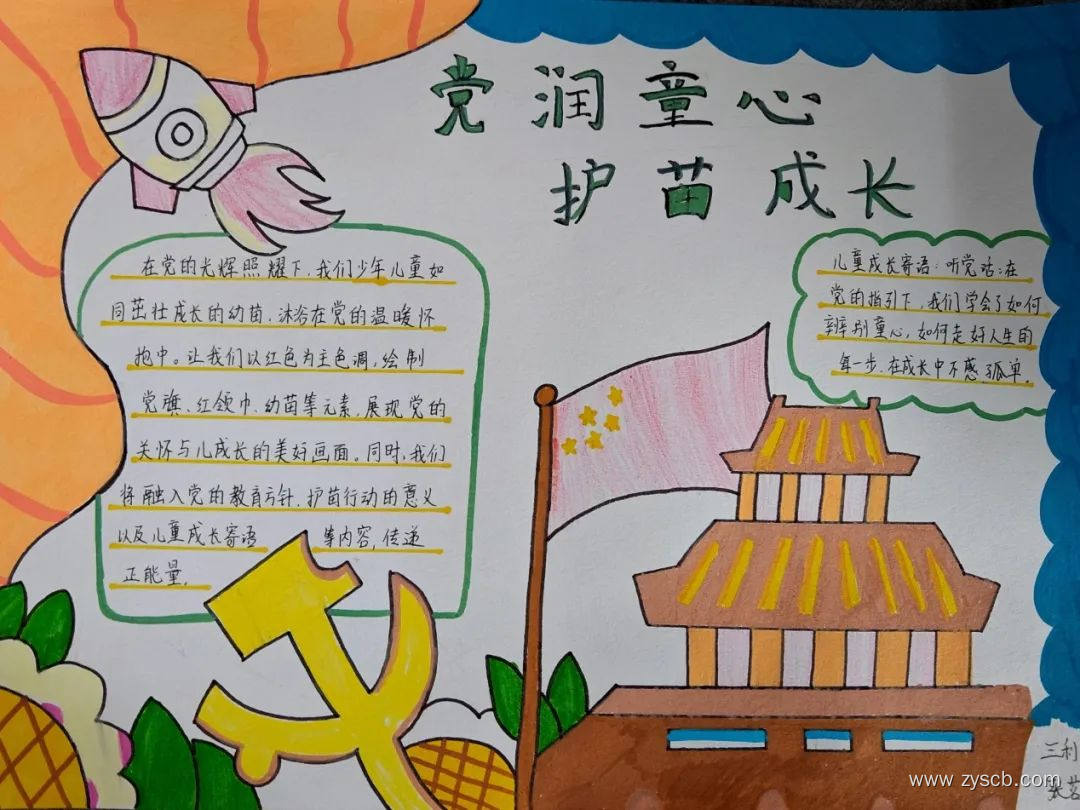 党润童心
护苗成长
在党的光辉照耀下，我们少年儿童如
同茁壮成长的幼苗，沐浴在党的温暖怀
抱中。让我们以红色为主色调，绘制
党旗、红领巾、幼苗等元素，展现党的
关怀与儿成长的美好画面。同时，我们
将融入党的教育方针、护苗行动的意义
以及儿童成长寄语 等内容，传递
正能量，
儿童成长寄语：听党话：在
党的指引下，我们学会了如何
辨别童心，如何走好人生的
每一步，在成长中不惑、孤单。
三
www.zyscb.com